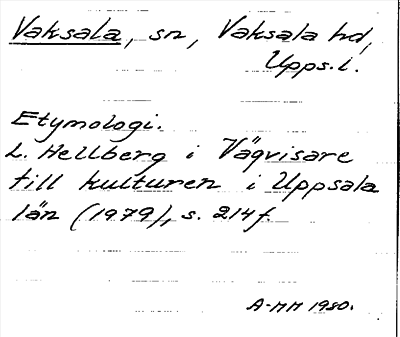 Vaksala, sn, Vaksala hd,
Upps. l.
Etymologi.
L. Hellberg i Vägvisare
till kulturen i Uppsala
län (1979), s. 214 f.
A-MM 1980.